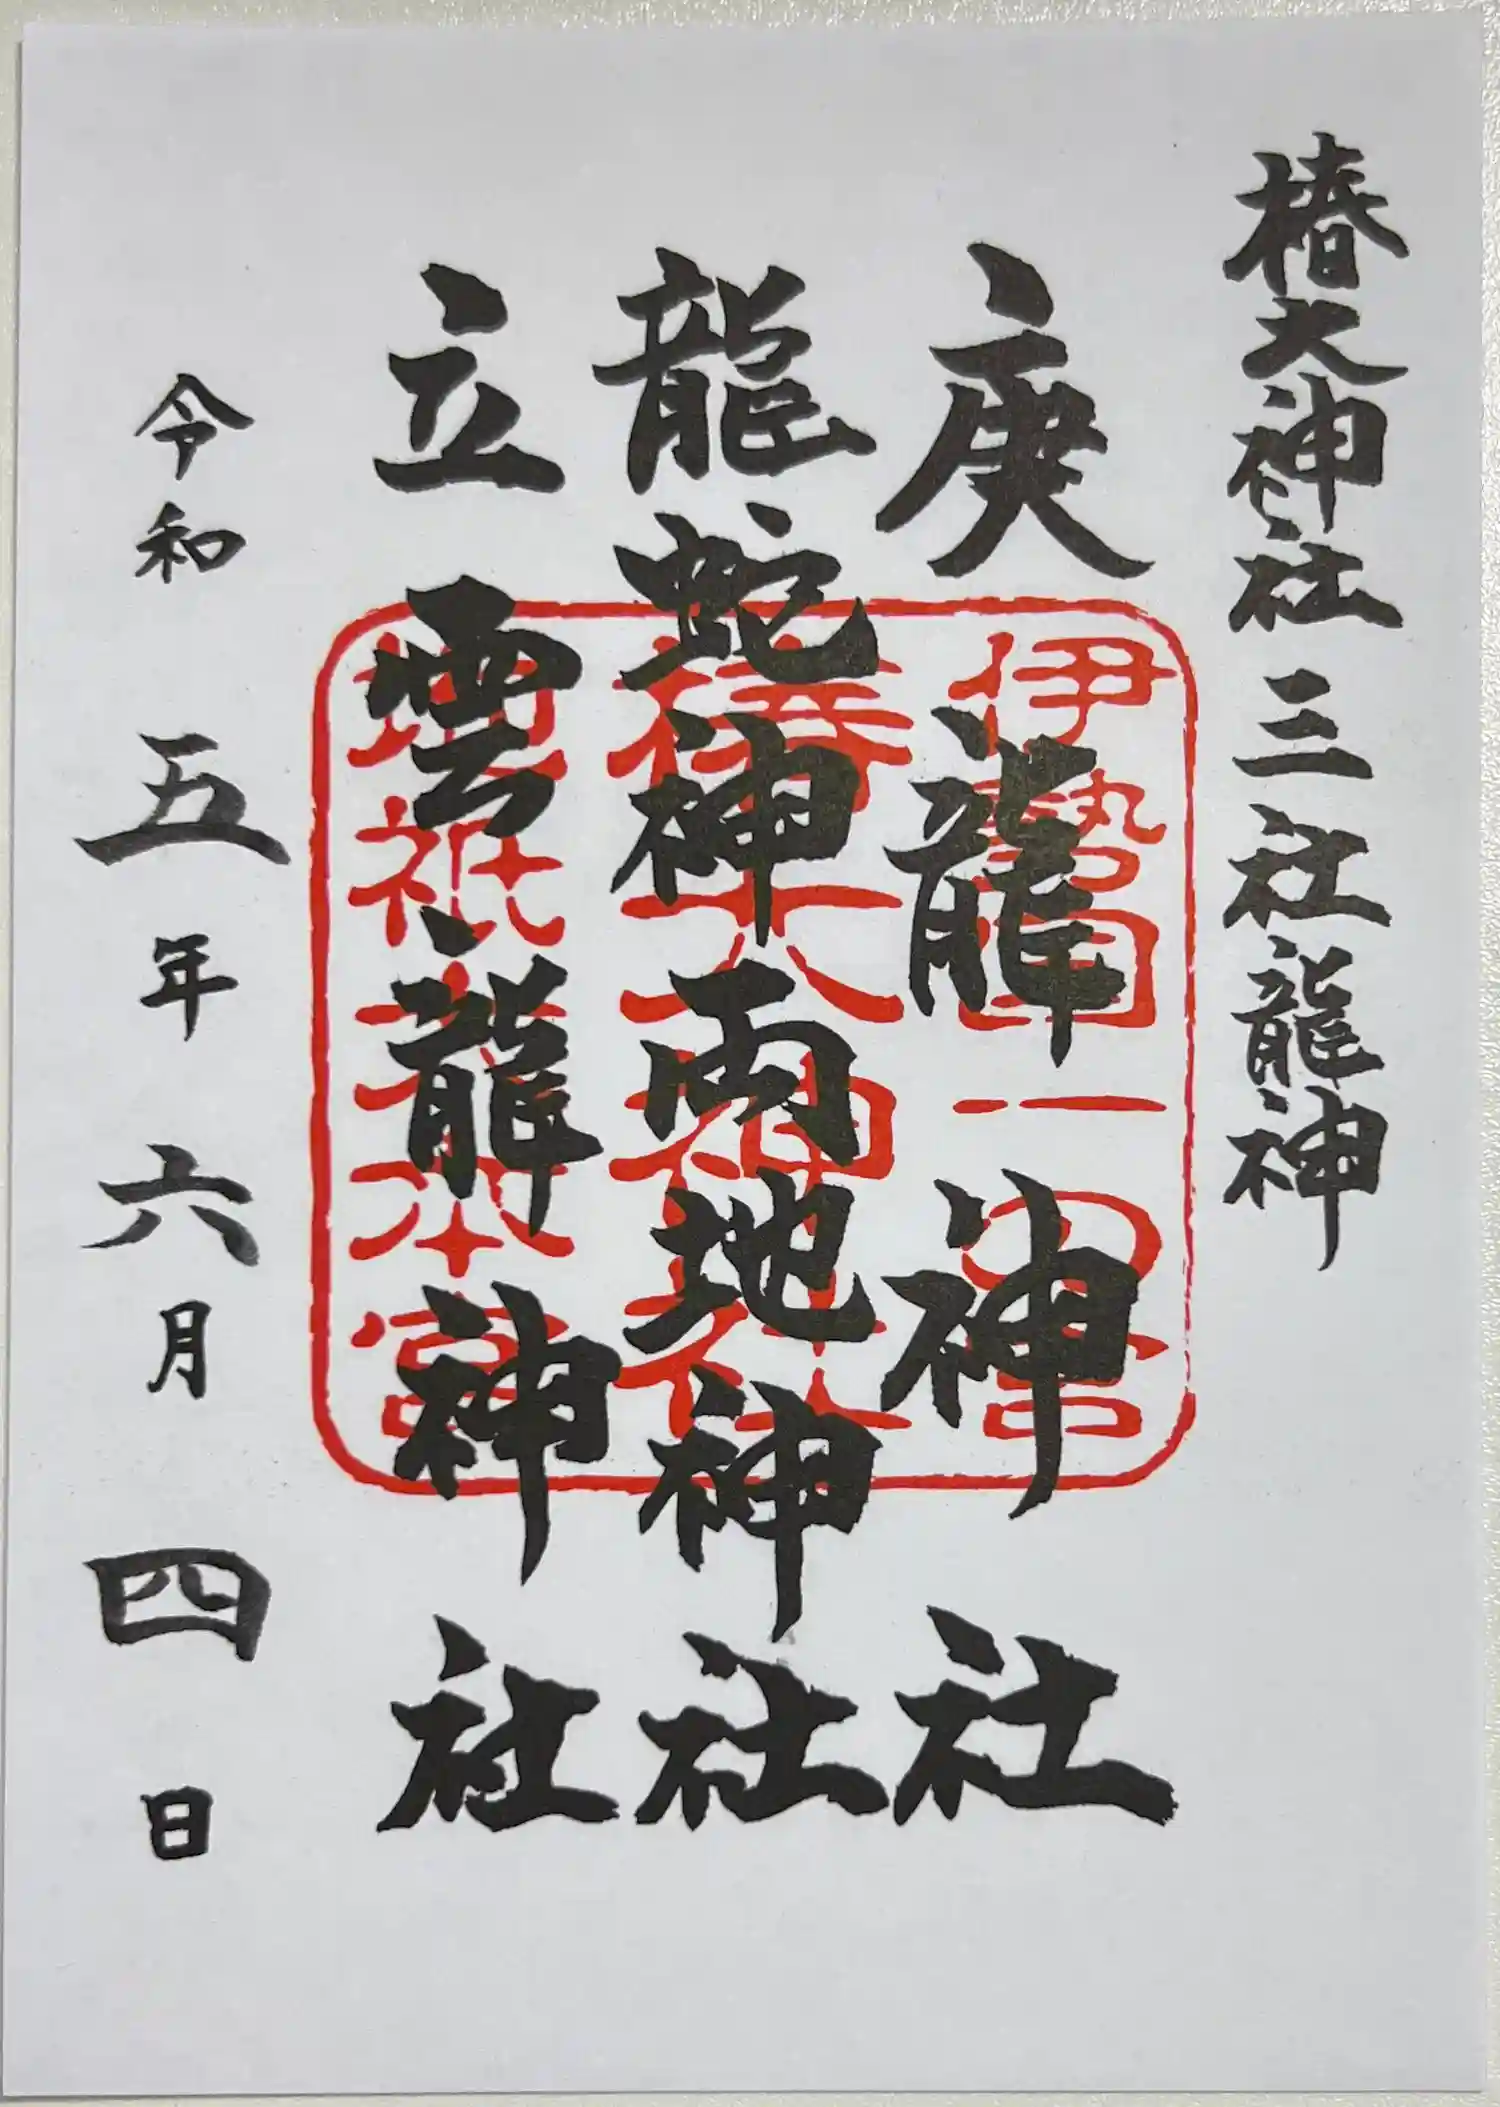 椿大神社 三社龍神
庚龍神社
龍蛇神両地神社
立雲龍神社
令和五年六月四日
伊勢国一の宮
椿大神社
地祇大本宮